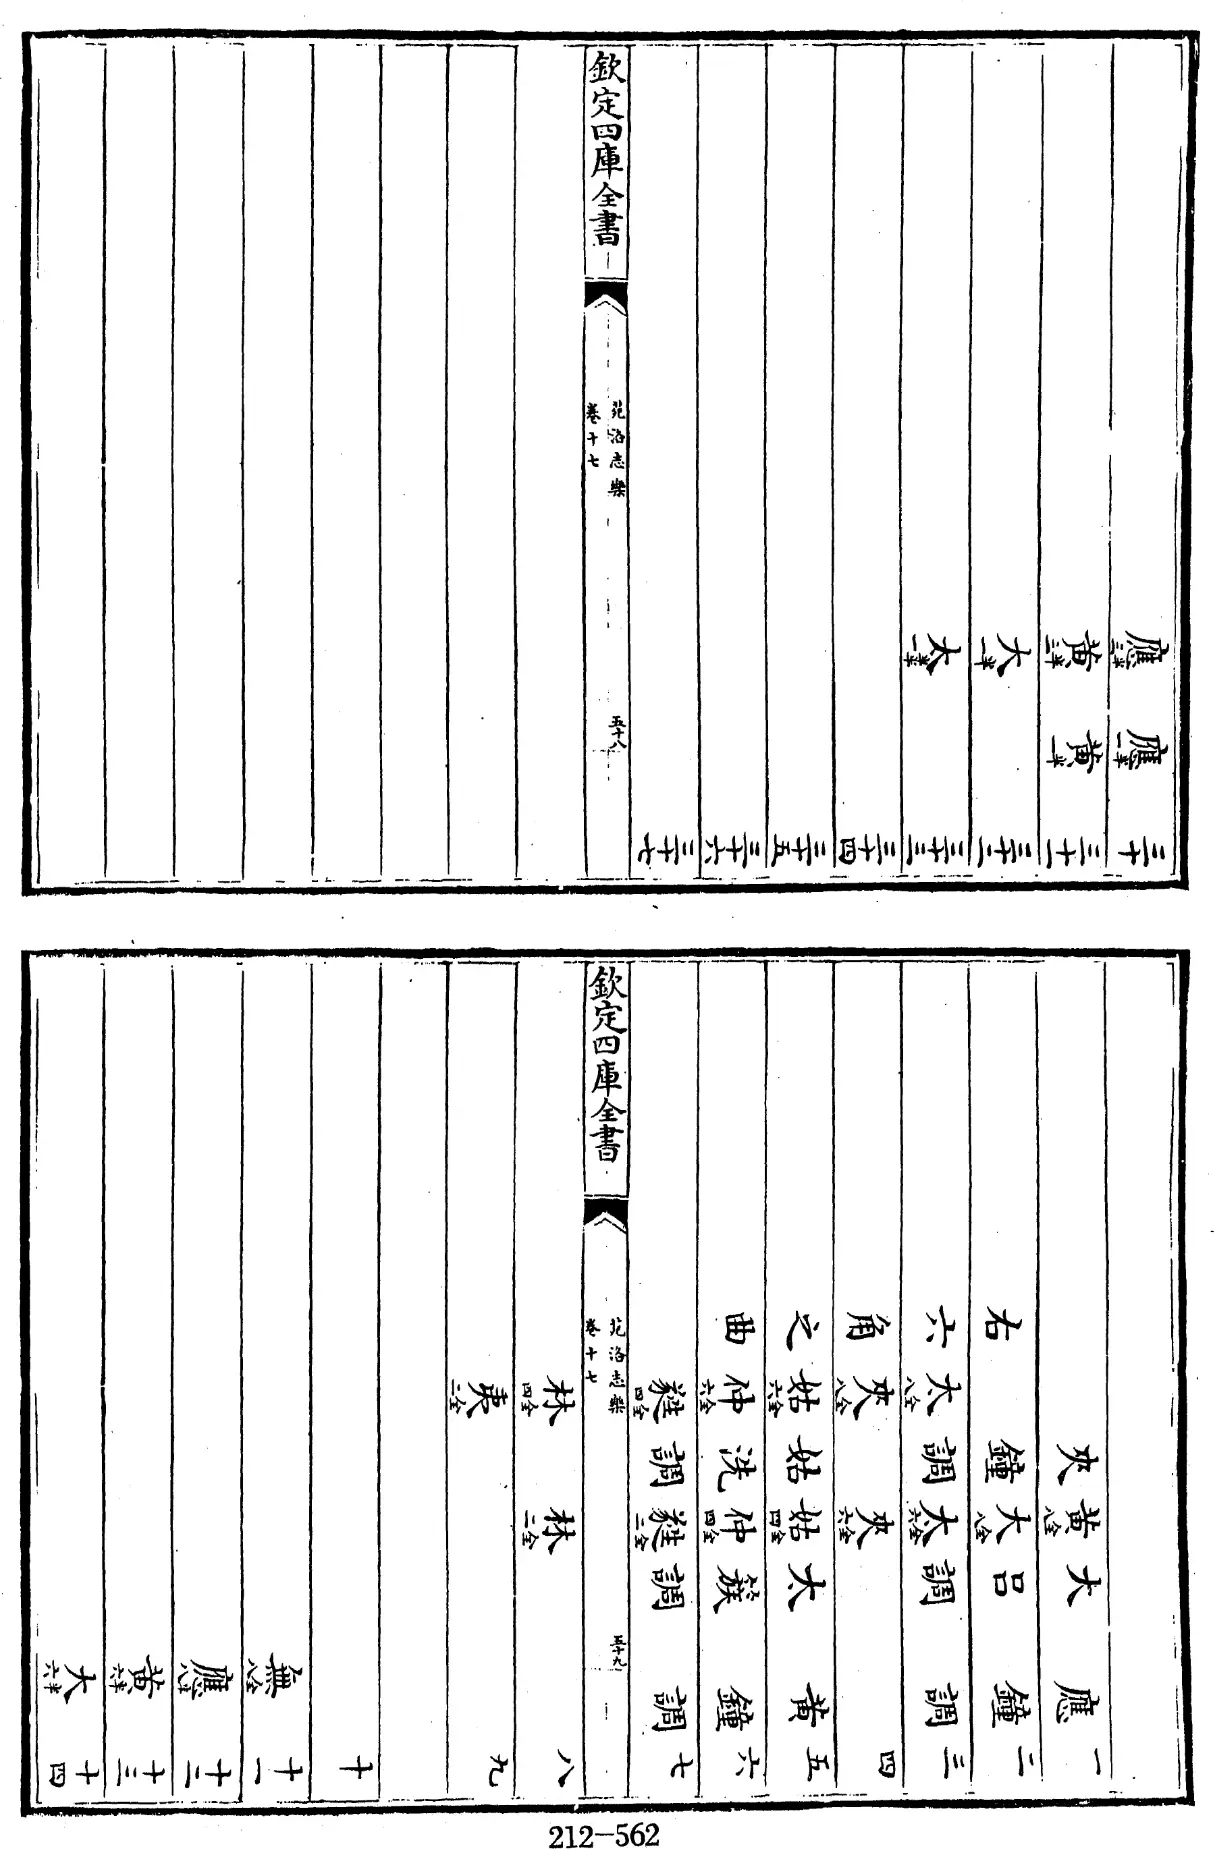 應半三 應半一 三十
黃半三 黃半一 三十一
大半一 三十二
太半一 三十三
三十四
三十五
三十六
三十七
欽定四庫全書
苑洛志樂
卷十七
五十八
夾 黃全八 大 應 一
右 鐘 大全八 呂 鐘 二
六 太全八 調 太全六 調 調 三
角 夾全八 夾全六 四
之 姑全六 姑 姑全四 太 黃 五
曲 仲全六 洗 仲全四 簇 鐘 六
蕤全四 調 蕤全二 調 調 七
欽定四庫全書
苑洛志樂
卷十七
五十九
林全四 林全二 八
夷全二 九
十
無全八 十一
應 十二
黃半六 十三
大半六 十四
212-562